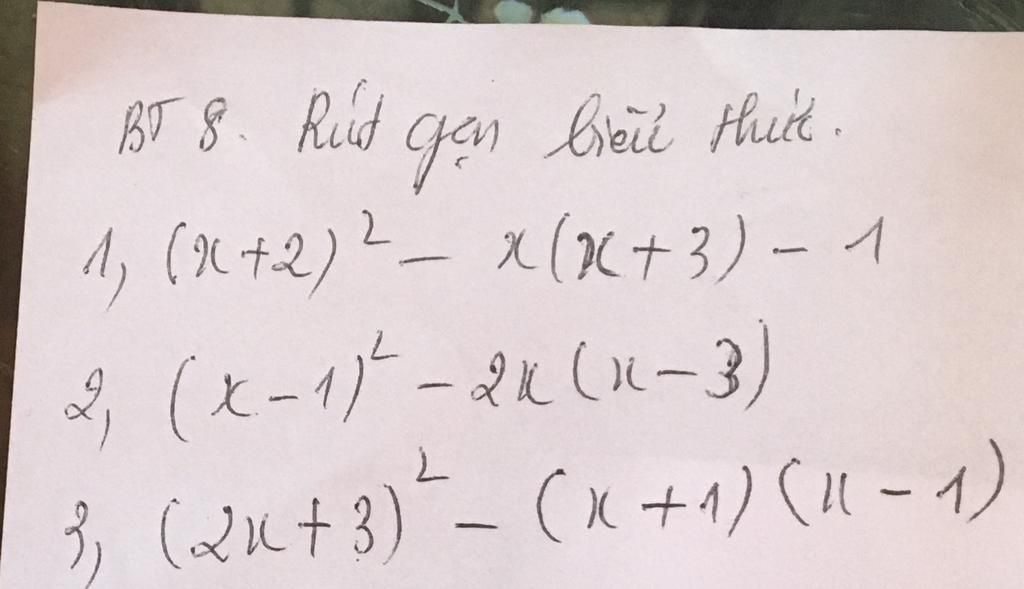 BT 8. Rút gọn biểu thức.
1, (x+2)² - x(x+3) - 1
2, (x-1)² - 2x(x-3)
3, (2x+3)² - (x+1)(x-1)